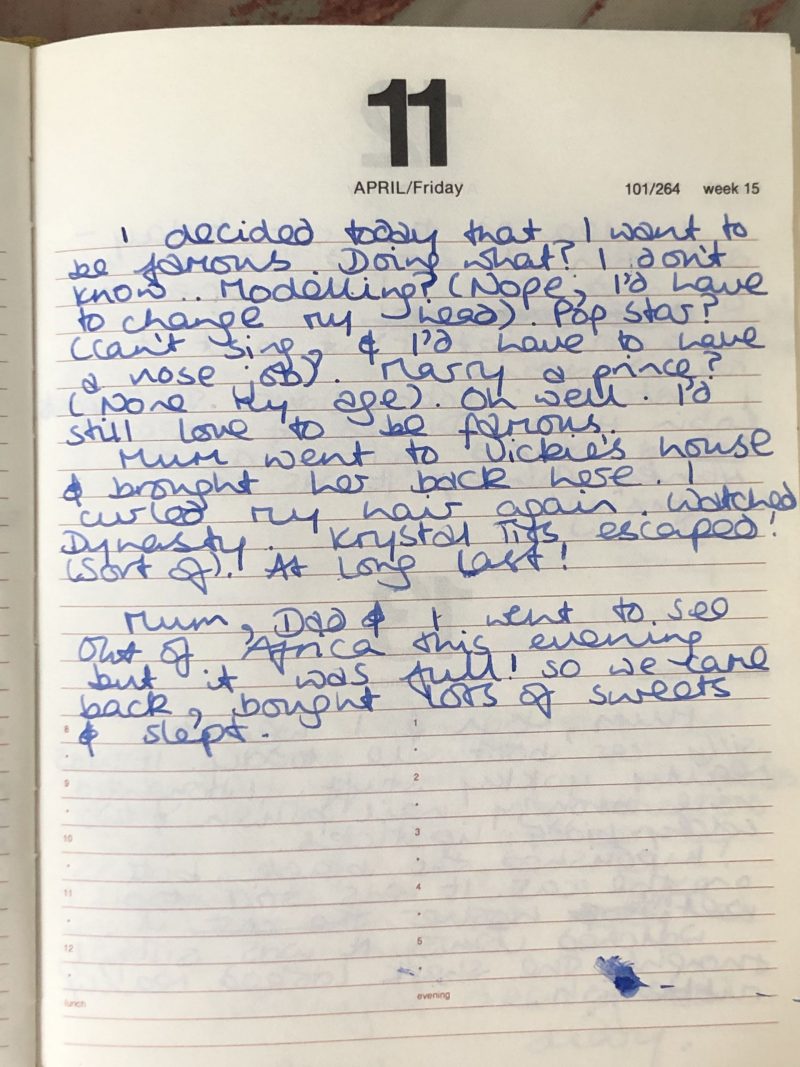 11
APRIL/Friday
101/264 week 15
I decided today that I want to
be famous. Doing what? I don't
know.. Modelling? (Nope, I'd have
to change my head). Pop star?
(Can't sing, & I'd have to have
a nose job). Marry a prince?
(None my age). Oh well. I'd
still love to be famous.
Mum went to Vickie's house
& brought her back here. I
curled my hair again. Watched
Dynasty. Krystal Tits escaped!
(Sort of). At long last!
Mum, Dad & I went to see
Out of Africa this evening
but it was full! so we came
back, bought lots of sweets
& slept.
8 1
9 2
10 3
11 4
12 5
lunch evening